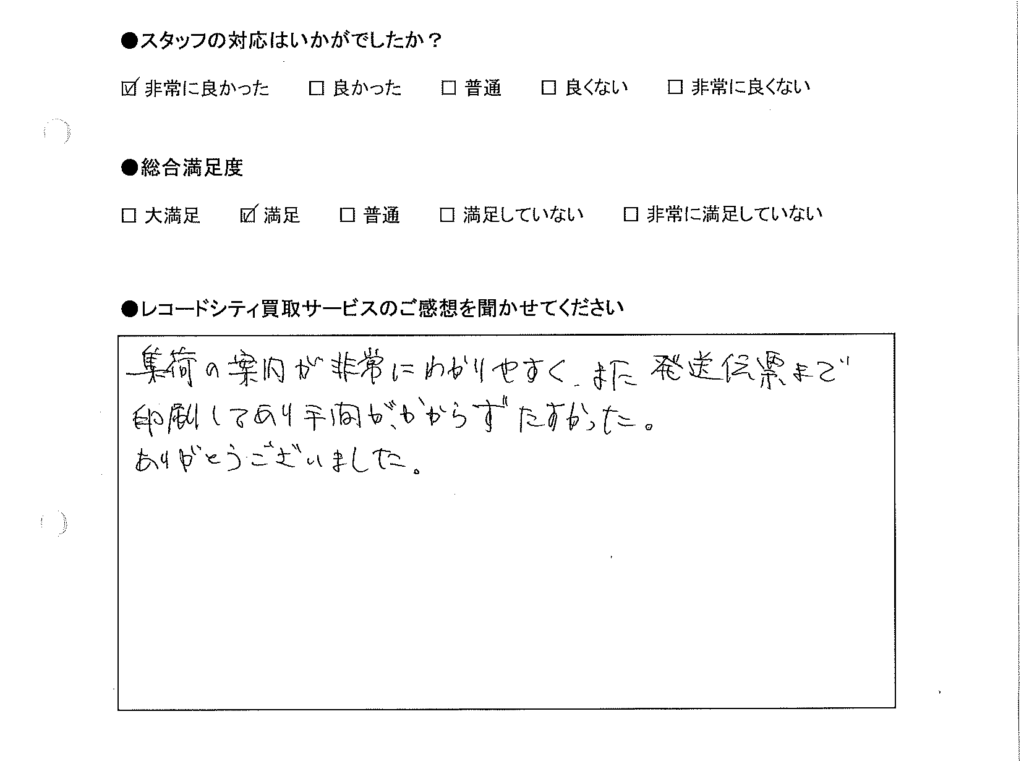 ●スタッフの対応はいかがでしたか？
☑ 非常に良かった □ 良かった □ 普通 □ 良くない □ 非常に良くない
●総合満足度
□ 大満足 ☑ 満足 □ 普通 □ 満足していない □ 非常に満足していない
●レコードシティ買取サービスのご感想を聞かせてください
集荷の案内が非常にわかりやすく、また発送伝票まで
印刷してあり手間がかからずたすかった。
ありがとうございました。